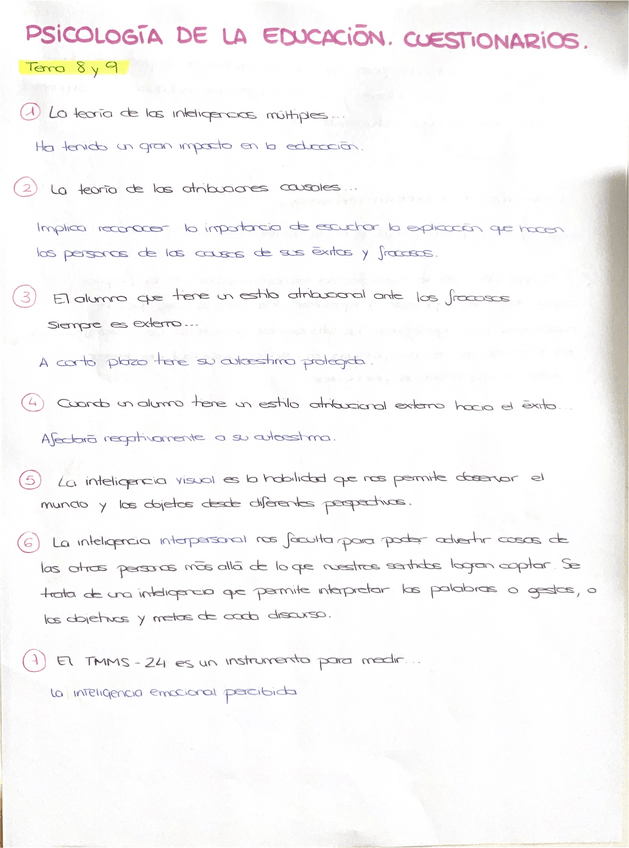 PSICOLOGÍA DE LA EDUCACIÓN. CUESTIONARIOS.
Tema 8 y 9
1 La teoría de las inteligencias múltiples...
Ha tenido un gran impacto en la educación.
2 La teoría de las atribuciones causales...
Implica reconocer la importancia de escuchar la explicación que hacen
las personas de las causas de sus éxitos y fracasos.
3 El alumno que tiene un estilo atribucional ante los fracasos
siempre es externo...
A corto plazo tiene su autoestima protegida.
4 Cuando un alumno tiene un estilo atribucional externo hacia el éxito...
Afectará negativamente a su autoestima.
5 La inteligencia visual es la habilidad que nos permite observar el
mundo y los objetos desde diferentes perspectivas.
6 La inteligencia interpersonal nos faculta para poder advertir cosas de
las otras personas más allá de lo que nuestros sentidos logran captar. Se
trata de una inteligencia que permite interpretar las palabras o gestos, o
los objetivos y metas de cada discurso.
7 El TMMS-24 es un instrumento para medir...
La inteligencia emocional percibida